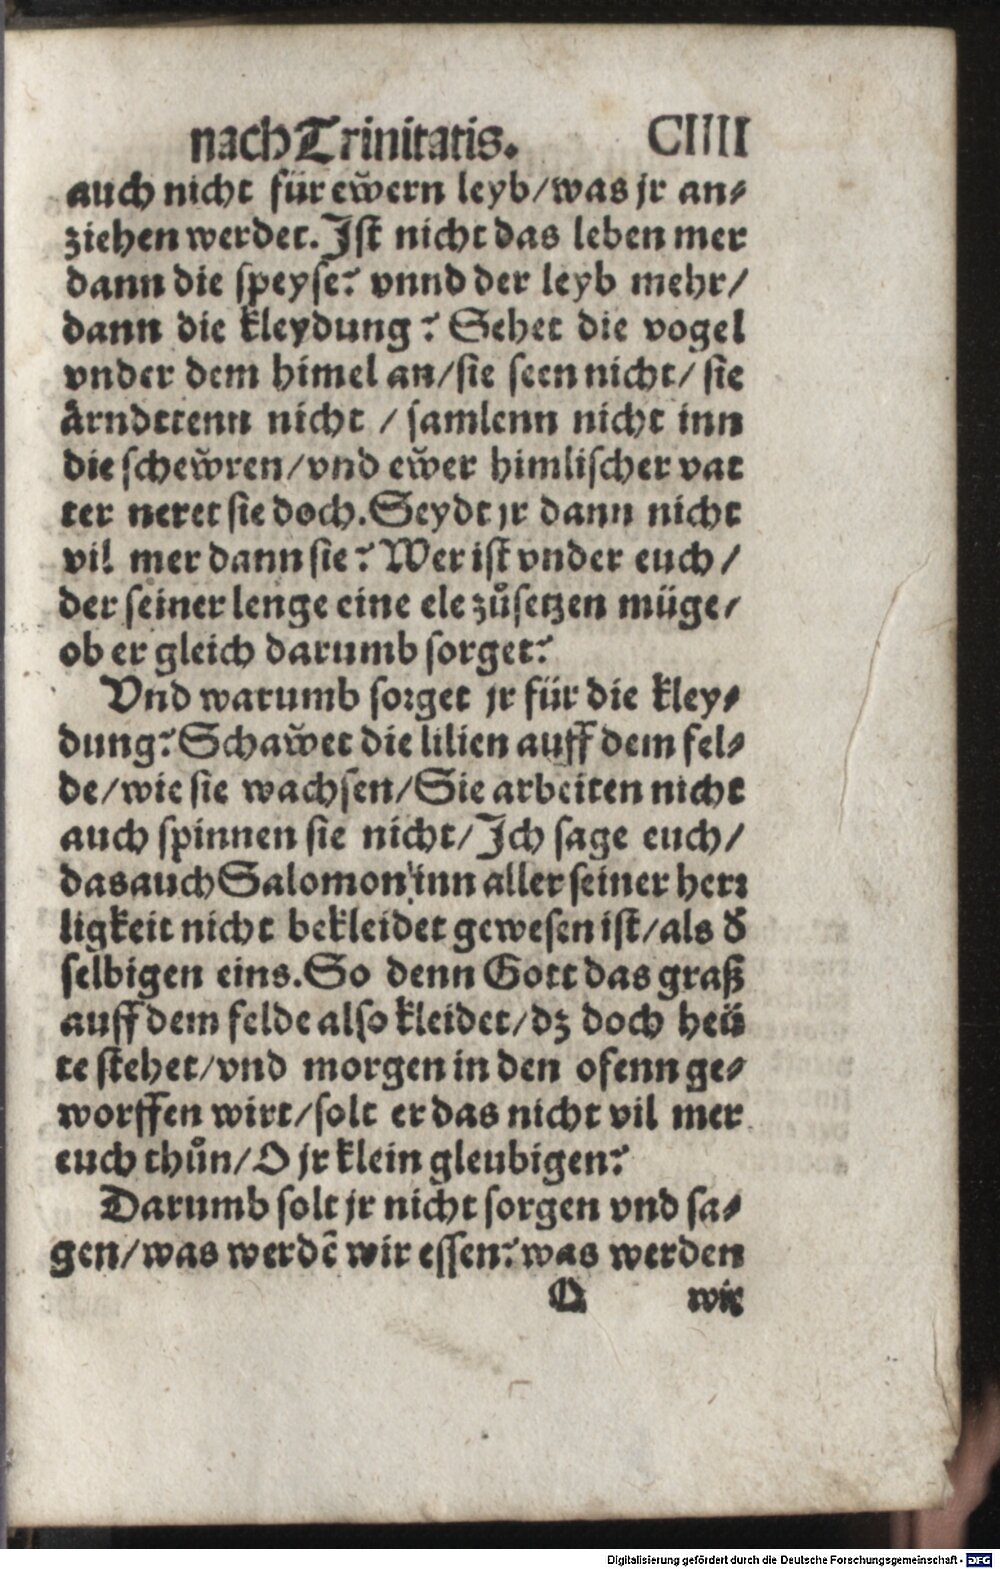 nach Trinitatis. CIIII
auch nicht für ewͤrn leyb/was jr an⸗
ziehen werdet. Ist nicht das leben mer
dann die speyse? vnnd der leyb mehr/
dann die kleydung? Sehet die vogel
vnder dem himel an/sie seen nicht/ sie
aͤrndttenn nicht / samlenn nicht inn
die schewͤren/vnd ewͤer himlischer vat
ter neret sie doch. Seydt jr dann nicht
vil mer dann sie? Wer ist vnder euch/
der seiner lenge eine ele zuͦsetzen müge/
ob er gleich darumb sorget?
Vnd warumb sorget jr für die kley⸗
dung? Schawͤet die lilien auff dem fel⸗
de/wie sie wachsen/Sie arbeiten nicht
auch spinnen sie nicht/Ich sage euch/
das auch Salomon inn aller seiner herꝛ
ligkeit nicht bekleidet gewesen ist/als d̕
selbigen eins. So denn Gott das graß
auff dem felde also kleidet/dz doch heü
te stehet/vnd morgen in den ofenn ge⸗
worffen wirt/solt er das nicht vil mer
euch thuͦn/O jr klein gleubigen?
Darumb solt jr nicht sorgen vnd sa⸗
gen/was werdē wir essen? was werden
O wir
Digitalisierung gefördert durch die Deutsche Forschungsgemeinschaft - DFG